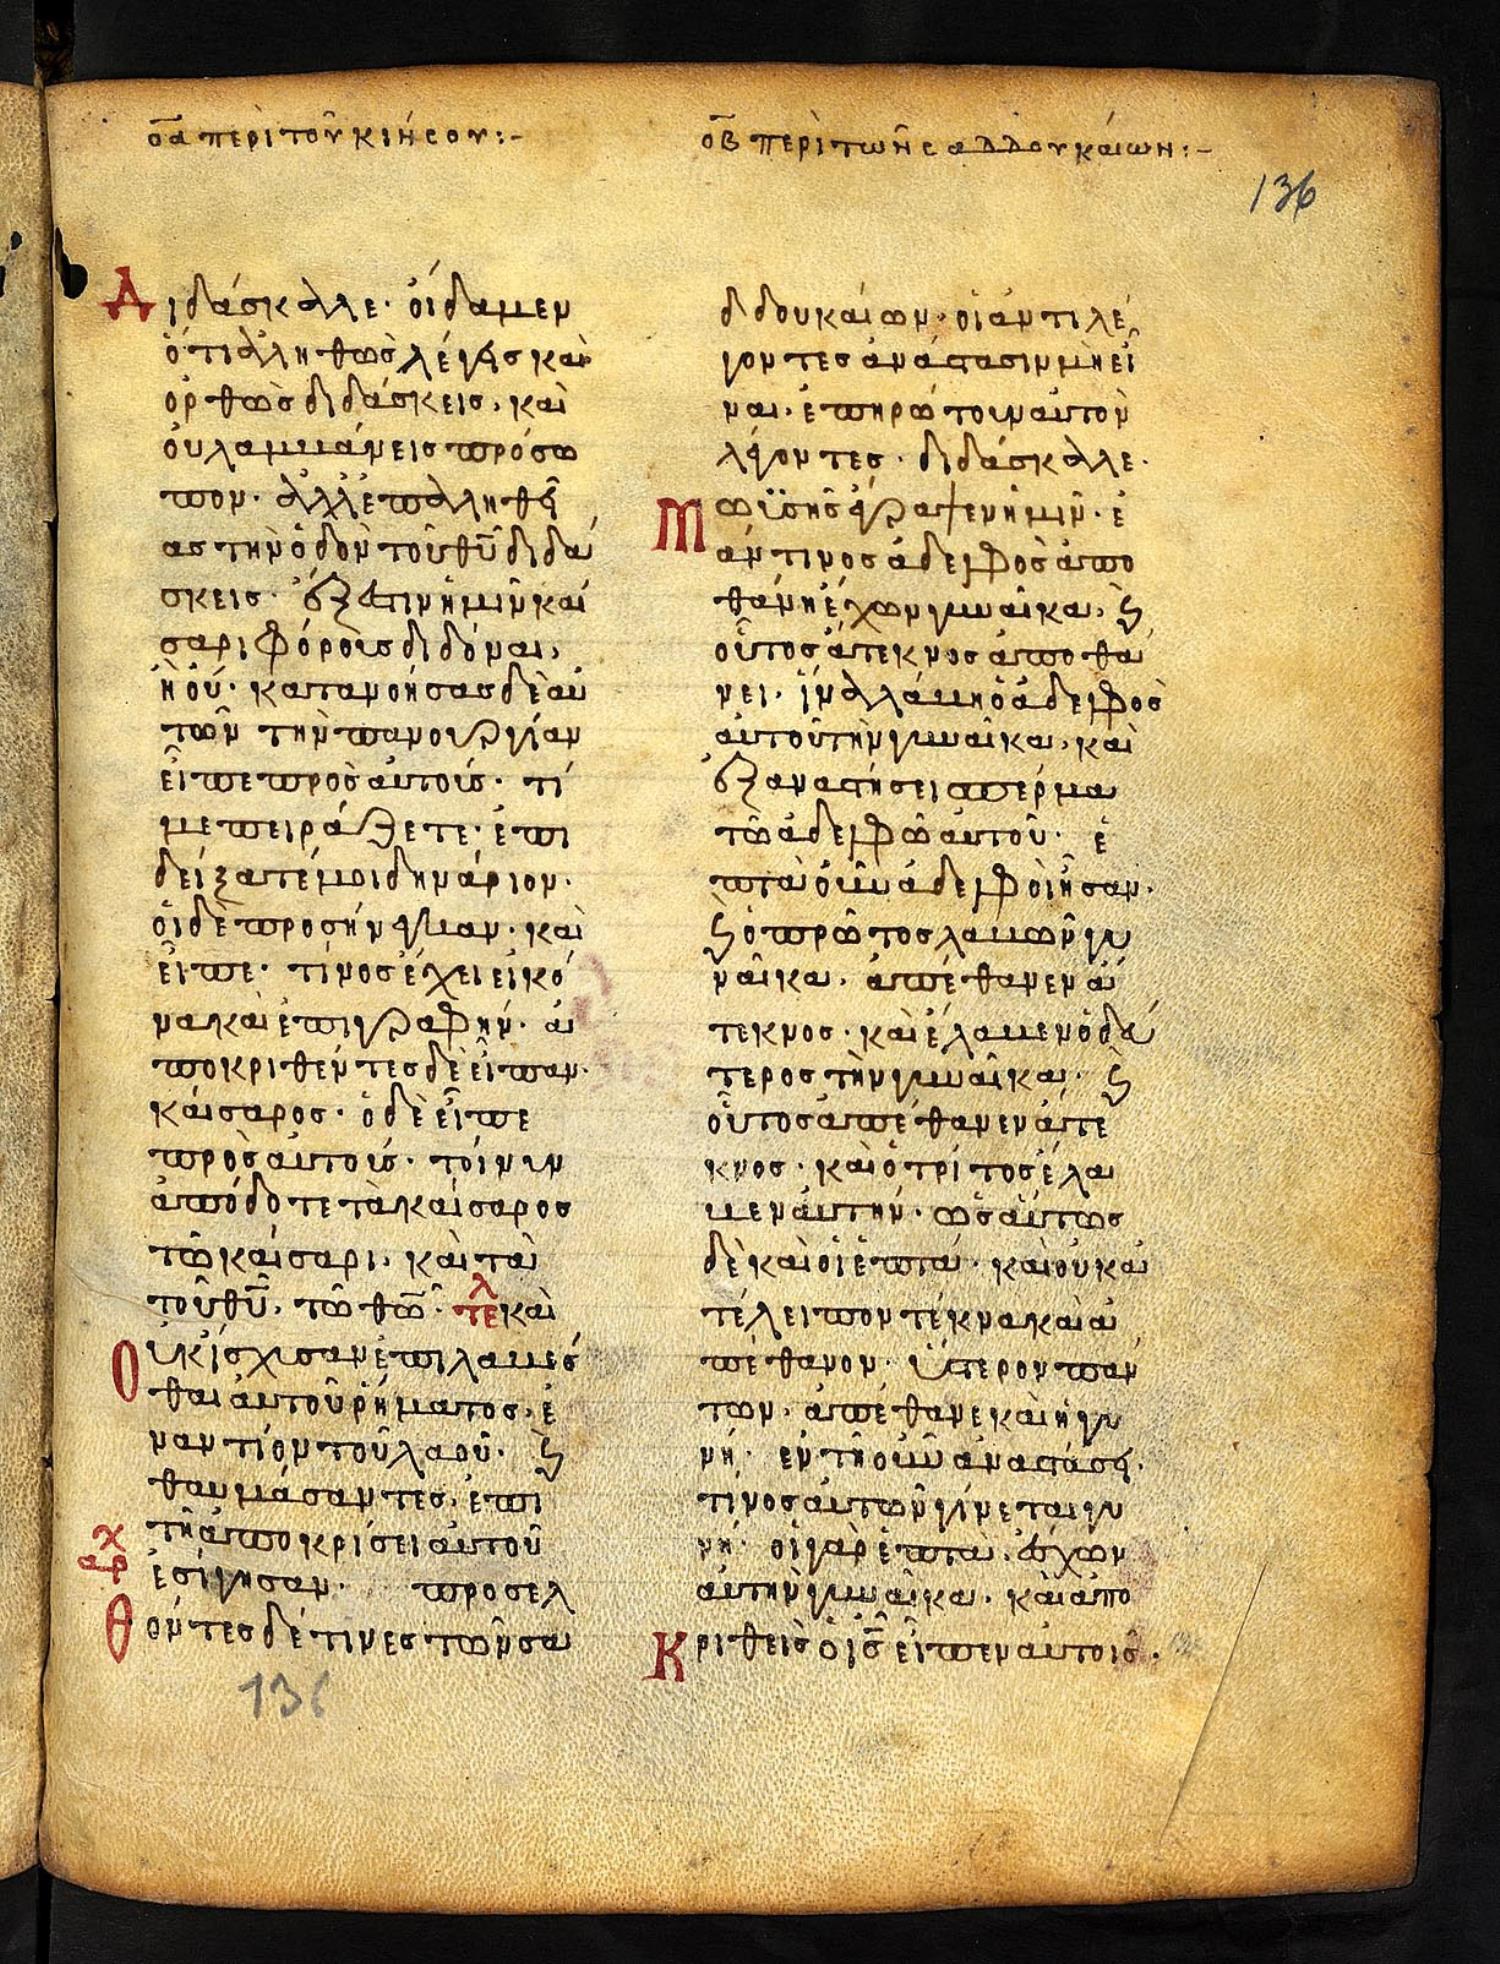 οα περὶ τοῦ κιήσου:-
οβ περὶ τῶν σαδδουκαίων:-
136
Διδάσκαλε· οἴδαμεν
ὅτι ἀληθῶς λέγεις καὶ
ὀρθῶς διδάσκεις, καὶ
οὐ λαμβάνεις πρόσω
πον· ἀλλ' ἐπ' ἀληθεί
ας τὴν ὁδὸν τοῦ θυ διδά
σκεις· ἔξεστιν ἡμῖν καί
σαρι φόρους διδόναι,
ἢ οὔ· κατανοήσας δὲ αὐ
τῶν τὴν πανουργίαν
εἶπε πρὸς αὐτούς· τί
με πειράζετε· ἐπι
δείξατέ μοι δηνάριον·
οἱ δὲ προσήνεγκαν· καὶ
εἶπε· τίνος ἔχει εἰκό
να καὶ ἐπιγραφήν· ἀ
ποκριθέντες δὲ εἶπαν·
καίσαρος· ὁ δὲ εἶπε
πρὸς αὐτούς· τοίνυν
ἀπόδοτε τὰ καίσαρος
τῶ καίσαρι, καὶ τὰ
τοῦ θυ, τῶ θω· τελ καὶ
Οὐκ ἴσχυσαν ἐπιλαβέσ
θαι αὐτοῦ ῥήματος, ἐ
ναντίον τοῦ λαοῦ· ϗ
θαυμάσαντες, ἐπὶ
τῇ ἀποκρίσει αὐτοῦ
αρχ ἐσίγησαν· προσελ
Θόντες δέ τινες τῶν σα
136
δδουκαίων, οἱ ἀντιλέ
γοντες ἀνάστασιν μὴ εἶ
ναι, ἐπηρώτουν αὐτὸν
λέγοντες· διδάσκαλε·
Μωϋσῆς ἔγραψεν ἡμῖν· ἐ
άν τινος ἀδελφὸς ἀπο
θάνη ἔχων γυναῖκα, ϗ
οὗτος ἄτεκνος ἀποθά
νει· ἵνα λάβη ὁ ἀδελφὸς
αὐτοῦ τὴν γυναῖκα, καὶ
ἐξαναστήσει σπέρμα
τῶ ἀδελφῶ αὐτοῦ· ἑ
πτὰ οὖν ἀδελφοὶ ἦσαν·
ϗ ὁ πρῶτος λαβὼν γυ
ναῖκα, ἀπέθανεν ἄ
τεκνος· καὶ ἔλαβεν ὁ δεύ
τερος τὴν γυναῖκα· ϗ
οὗτος ἀπέθανεν ἄτε
κνος· καὶ ὁ τρίτος ἔλα
βεν αὐτήν· ὡσαύτως
δὲ καὶ οἱ ἑπτά· καὶ οὐ κα
τέλειπον τέκνα καὶ ἀ
πέθανον· ὕστερον πάν
των, ἀπέθανε καὶ ἡ γυ
νή· ἐν τῇ οὖν ἀναστάσει·
τίνος αὐτῶν γίνεται γυ
νή· οἱ γὰρ ἑπτὰ, ἔσχον
αὐτὴν γυναῖκα· καὶ ἀπο
Κριθεὶς ὁ ις εἶπεν αὐτοῖς·